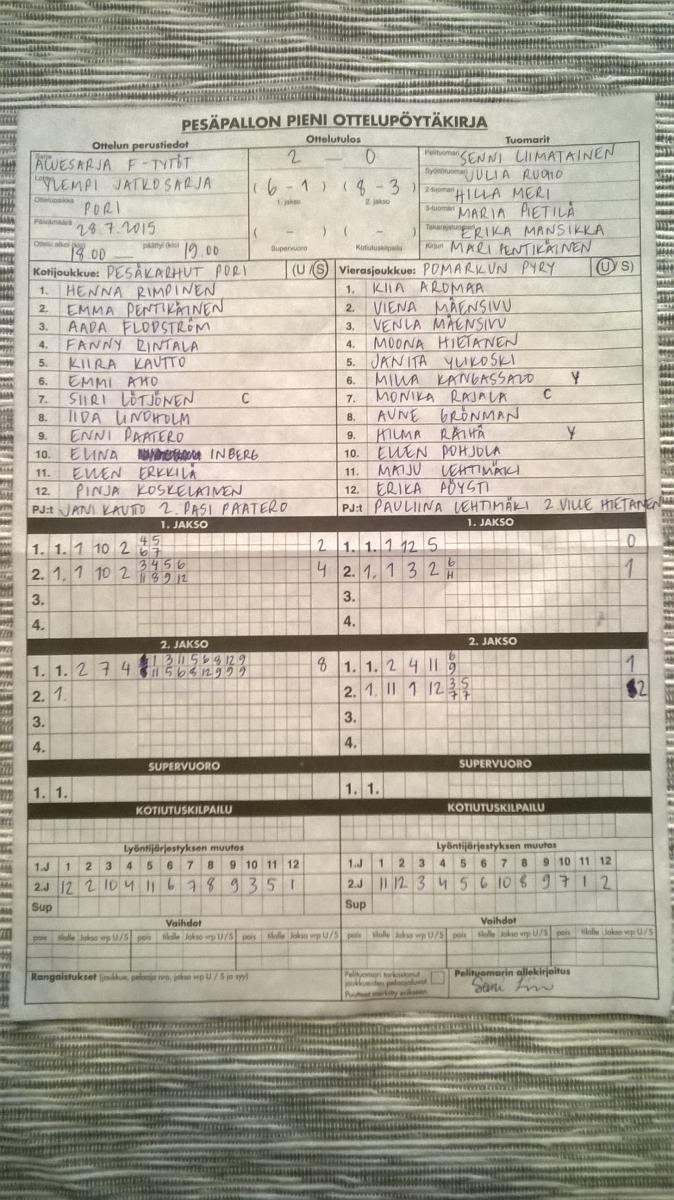 PESÄPALLON PIENI OTTELUPÖYTÄKIRJA
Ottelun perustiedot Ottelutulos Tuomarit
Sarja ALUESARJA F-TYTÖT
Lohko YLEMPI JATKOSARJA
Ottelupaikka PORI
Päivämäärä 28.7.2015
Ottelu alkoi (klo) 18.00 päättyi (klo) 19.00
2 - 0
(6 - 1) (8 - 3)
1. jakso 2. jakso
( - ) ( - )
Supervuoro Kotiutuskilpailu
Pelituomari SENNI LIIMATAINEN
Syöttötuomari JULIA RUOHO
2-tuomari HILLA MERI
3-tuomari MARIA PIETILÄ
Takarajatuomari ERIKA MANSIKKA
Kirjuri MARI PENTIKÄINEN
Kotijoukkue: PESÄKARHUT PORI (U / S)
1. HENNA RIMPINEN
2. EMMA PENTIKÄINEN
3. AADA FLODSTRÖM
4. FANNY RINTALA
5. KIIRA KAUTTO
6. EMMI AHO
7. SIIRI LÖTJÖNEN C
8. IIDA LINDHOLM
9. ENNI PAATERO
10. ELINA INBERG
11. ELLEN ERKKILÄ
12. PINJA KOSKELAINEN
PJ:t JANI KAUTTO 2. PASI PAATERO
Vierasjoukkue: POMARKUN PYRY (U / S)
1. KIIA AROMAA
2. VIENA MÄENSIVU
3. VENLA MÄENSIVU
4. MOONA HIETANEN
5. JANITA YLIKOSKI
6. MILLA KANGASSALO Y
7. MONIKA RAJALA C
8. AUNE GRÖNMAN
9. HILMA RÄIHÄ Y
10. ELLEN POHJOLA
11. MAIJU LEHTIMÄKI
12. ERIKA PÖYSTI
PJ:t PAULIINA LEHTIMÄKI 2. VILLE HIETANEN
1. JAKSO 1. JAKSO
1. 1. 1 10 2 4 5 2
6 7
2. 1. 1 10 2 3 4 5 6 4
11 8 9 12
3.
4.
1. 1. 1 12 5 0
2. 1. 1 3 2 6 1
H
3.
4.
2. JAKSO 2. JAKSO
1. 1. 2 7 4 1 3 11 5 6 8 12 9 8
11 5 6 8 12 9 9 9
2. 1.
3.
4.
1. 1. 2 4 11 6 1
9
2. 1. 11 1 12 3 5 2
7 7
3.
4.
SUPERVUORO SUPERVUORO
1. 1. 1. 1.
KOTIUTUSKILPAILU KOTIUTUSKILPAILU
Lyöntijärjestyksen muutos Lyöntijärjestyksen muutos
1.J 1 2 3 4 5 6 7 8 9 10 11 12 1.J 1 2 3 4 5 6 7 8 9 10 11 12
2.J 12 2 10 4 11 6 7 8 9 3 5 1 2.J 11 12 3 4 5 6 10 8 9 7 1 2
Sup Sup
Vaihdot Vaihdot
pois tilalle Jakso vrp U/S pois tilalle Jakso vrp U/S pois tilalle Jakso vrp U/S pois tilalle Jakso vrp U/S pois tilalle Jakso vrp U/S pois tilalle Jakso vrp U/S
Rangaistukset (joukkue, pelaaja nro, jakso vrp U / S ja syy)
Pelituomari tarkastanut
joukkueiden pelaajaluvat
Puutteet merkitty erikseen.
Pelituomarin allekirjoitus